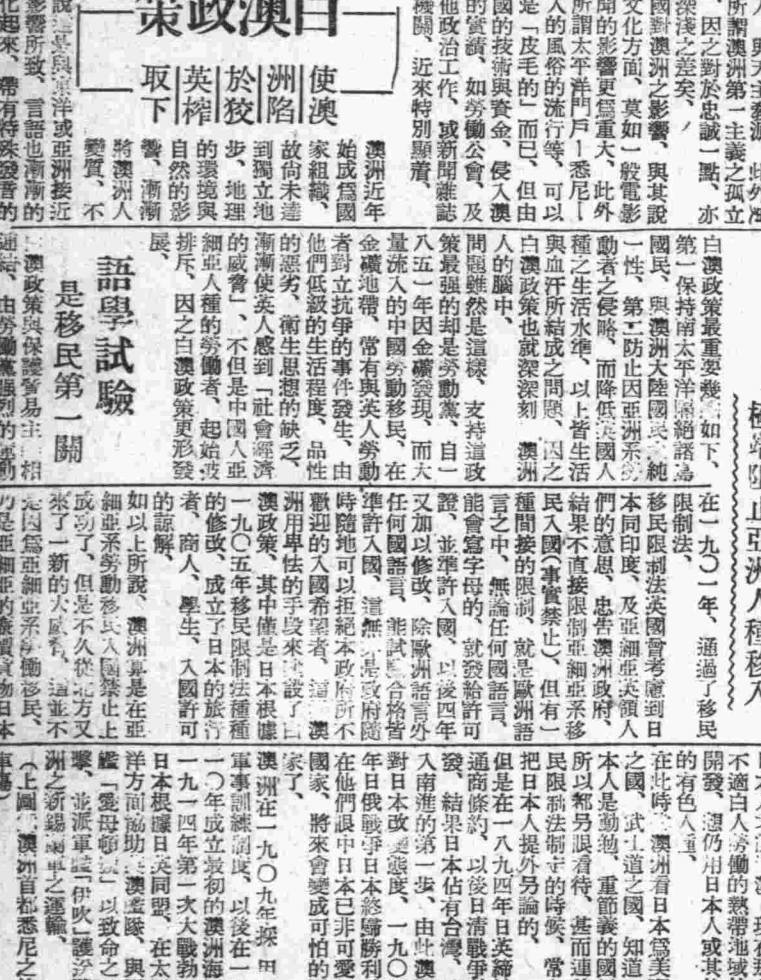 所謂澳洲第一主義之孤立
、因之對於忠誠一點、亦
深淺之差矣、
國對澳洲之影響、與其說
文化方面、莫如一般電影
聞的影響更爲重大、此外
所謂太平洋門戶—悉尼—
人的風俗的流行等、可以
是「皮毛的」而已、但由
國的技術與資金、侵入澳
的實績、如勞働公會、及
他政治工作、或新聞雜誌
機關、近來特別顯着、
白澳政策
使澳
洲陷
於狡
英榨
取下
澳洲近年
始成爲國
家組織、
故尙未達
到獨立地
步、地理
的環境與
自然的影
響、漸漸
將澳洲人
變質、不
說這是與東洋或亞洲接近
影響所致、言語也漸漸的
化起來、帶有特殊發音的
極端阻止亞洲人種移入
白澳政策最重要幾 如下、
第一保持南太平洋隔絕諸島
國民、與澳洲大陸國民、純
一性、第二防止因亞洲系勞
動者之侵略、而降低英國人
種之生活水準、以上皆生活
與血汗所結成之問題、因之
白澳政策也就深深刻 澳洲
人的腦中、
問題雖然是這樣、支持這政
策最强的却是勞動黨、自一
八五一年因金礦發現、而大
量流入的中國勞動移民、在
金礦地帶、常有與英人勞動
者對立抗爭的事件發生、由
他們低級的生活程度、品性
的惡劣、衛生思想的缺乏、
漸漸使英人感到「社會經濟
的威脅」、不但是中國人亞
細亞人種的勞働者、起始被
排斥、因之白澳政策更形發
展、
語學試驗
是移民第一關
澳政策與保護貿易主 相
連結、由勞働黨强烈的 動
在一九〇一年、通過了移民
限制法、
移民限制法英國曾考慮到日
本同印度、及亞細亞英領人
們的意思、忠告澳洲政府、
結果不直接限制亞細亞系移
民入國(事實禁止)、但有一
種間接的限制、就是歐洲語
言之中、無論任何國語言、
能會寫字母的、就發給許可
證、並準許入國、以後四年
又加以修改、除歐洲語言外
任何國語言、能試驗合格皆
準許入國、這無 是政府隨
時隨地可以拒絕本政府所不
歡迎的入國希望者、這 澳
洲用卑怯的手段來建設了白
澳政策、其中僅是日本根據
一九〇五年移民限制法種種
的修改、成立了日本的旅行
者、商人、學生、入國許可
的諒解、
如以上所說、澳洲算是在亞
細亞系勞動移民入國禁止上
成功了、但是不久從北方又
來了一新的大威脅、這並不
是因爲亞細亞系勞働移民、
乃是亞細亞的廉價貨物日本
不適白人勞働的熱帶地域
開發、想仍用日本人或其
的有色人種、
在此時 澳洲看日本爲美
之國、武士道之國、知道
本人是勤勉、重節義的國
所以都另眼看待、甚而連
民限制法制定的時候、常
把日本人提外另論的、
但是在一八九四年日英締
通商條約、以後日清戰爭
發、結果日本佔有台灣、
入南進的第一步、由此澳
對日本改變態度、一九〇
年日俄戰爭日本終歸勝利
在他們眼中日本已非可愛
國家、將來會變成可怕的
家了、
澳洲在一九〇九年採用
軍事訓練制度、以後在一
一〇年成立最初的澳洲海
一九一四年第一次大戰勃
日本根據日英同盟、在太
洋方面協助 澳艦隊、與
艦「愛母頓號」以致命之
擊、並派軍艦「伊吹」護送
洲之新錫蘭軍之運輸、
(上圖 澳洲首都悉尼之